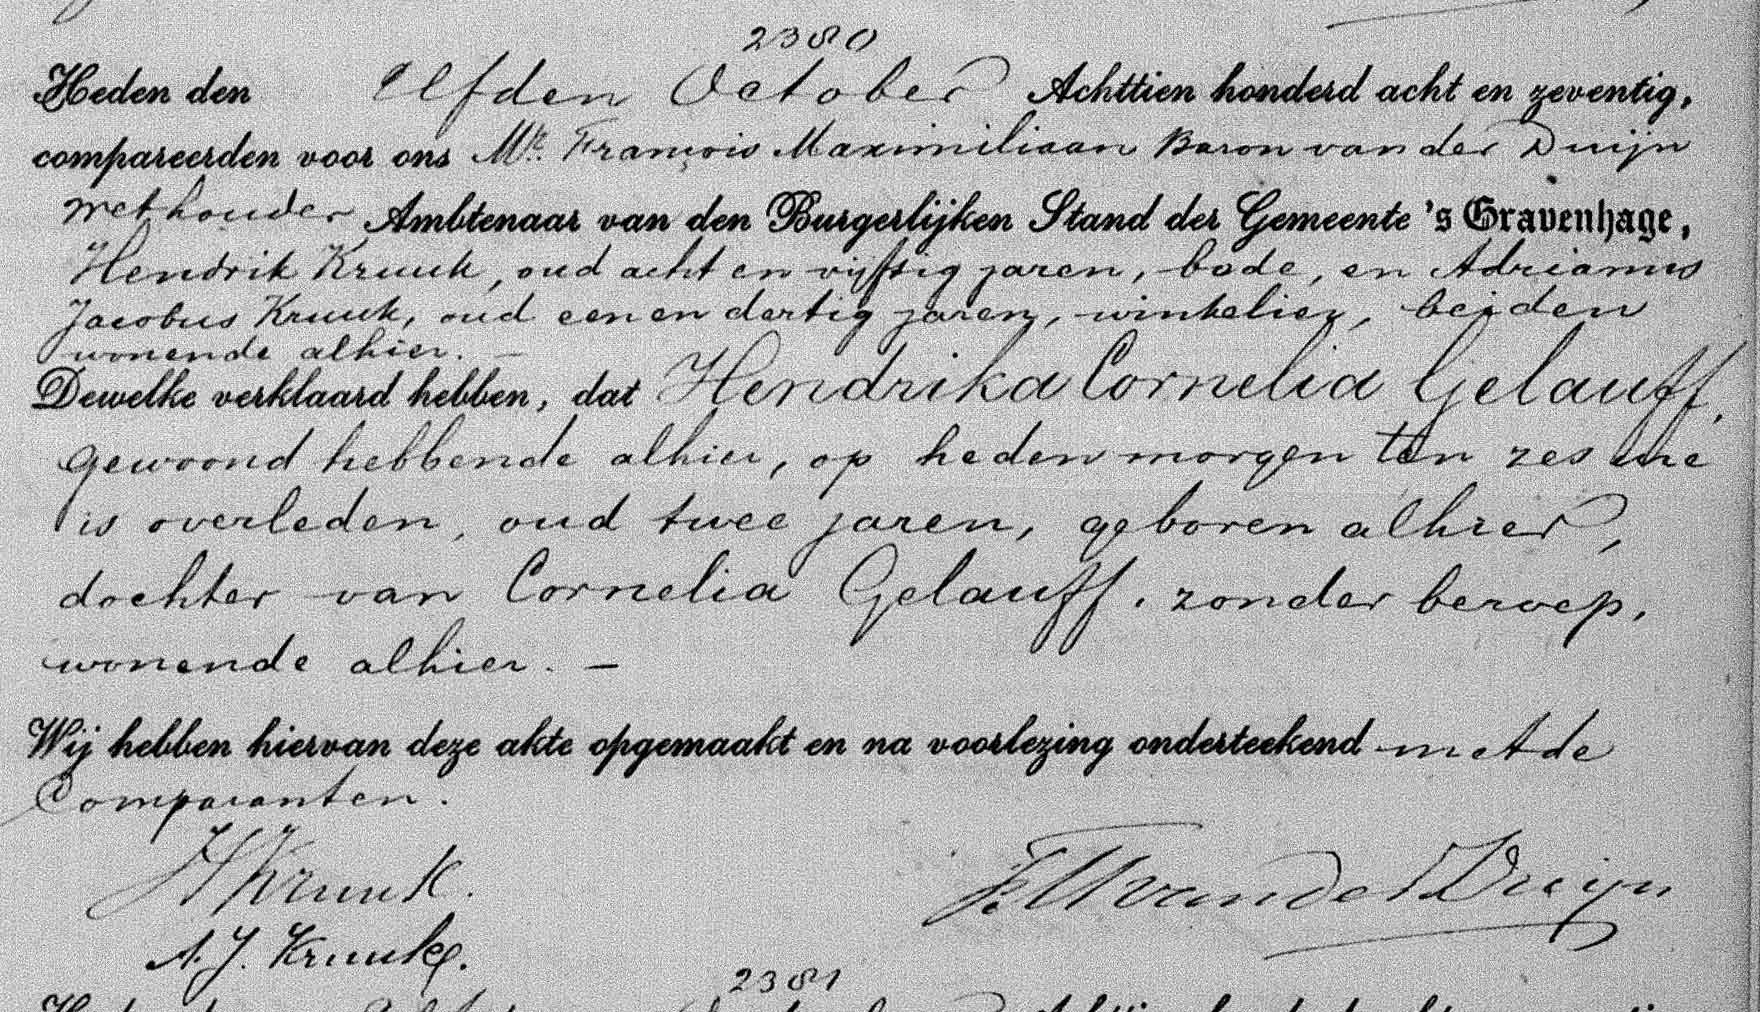 2380
Heden den Elfden October Achttien honderd acht en zeventig,
compareerden voor ons Mr. François Maximiliaan Baron van der Duijn
wethouder Ambtenaar van den Burgerlijken Stand der Gemeente 's Gravenhage,
Hendrik Kruuk, oud acht en vijftig jaren, bode, en Adrianus
Jacobus Kruuk, oud een en dertig jaren, winkelier, beiden
wonende alhier. —
Dewelke verklaard hebben, dat Hendrika Cornelia Gelauff,
gewoond hebbende alhier, op heden morgen ten zes ure
is overleden, oud twee jaren, geboren alhier,
dochter van Cornelia Gelauff, zonder beroep,
wonende alhier. —
Wij hebben hiervan deze akte opgemaakt en na voorlezing onderteekend met de
Comparanten.
HKruuk.
FMvanderDuijn
A. J. Kruuk.
2381